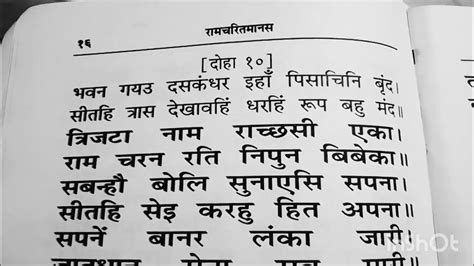 रामचरितमानस
१६
[दोहा १०]
भवन गयउ दसकंधर इहाँ पिसाचिनि बृंद।
सीतहि त्रास देखावहिं धरहिं रूप बहु मंद॥
त्रिजटा नाम राच्छसी एका।
राम चरन रति निपुन बिबेका॥
सबन्हौ बोलि सुनाएसि सपना।
सीतहि सेइ करहु हित अपना॥
सपनें बानर लंका जारी।